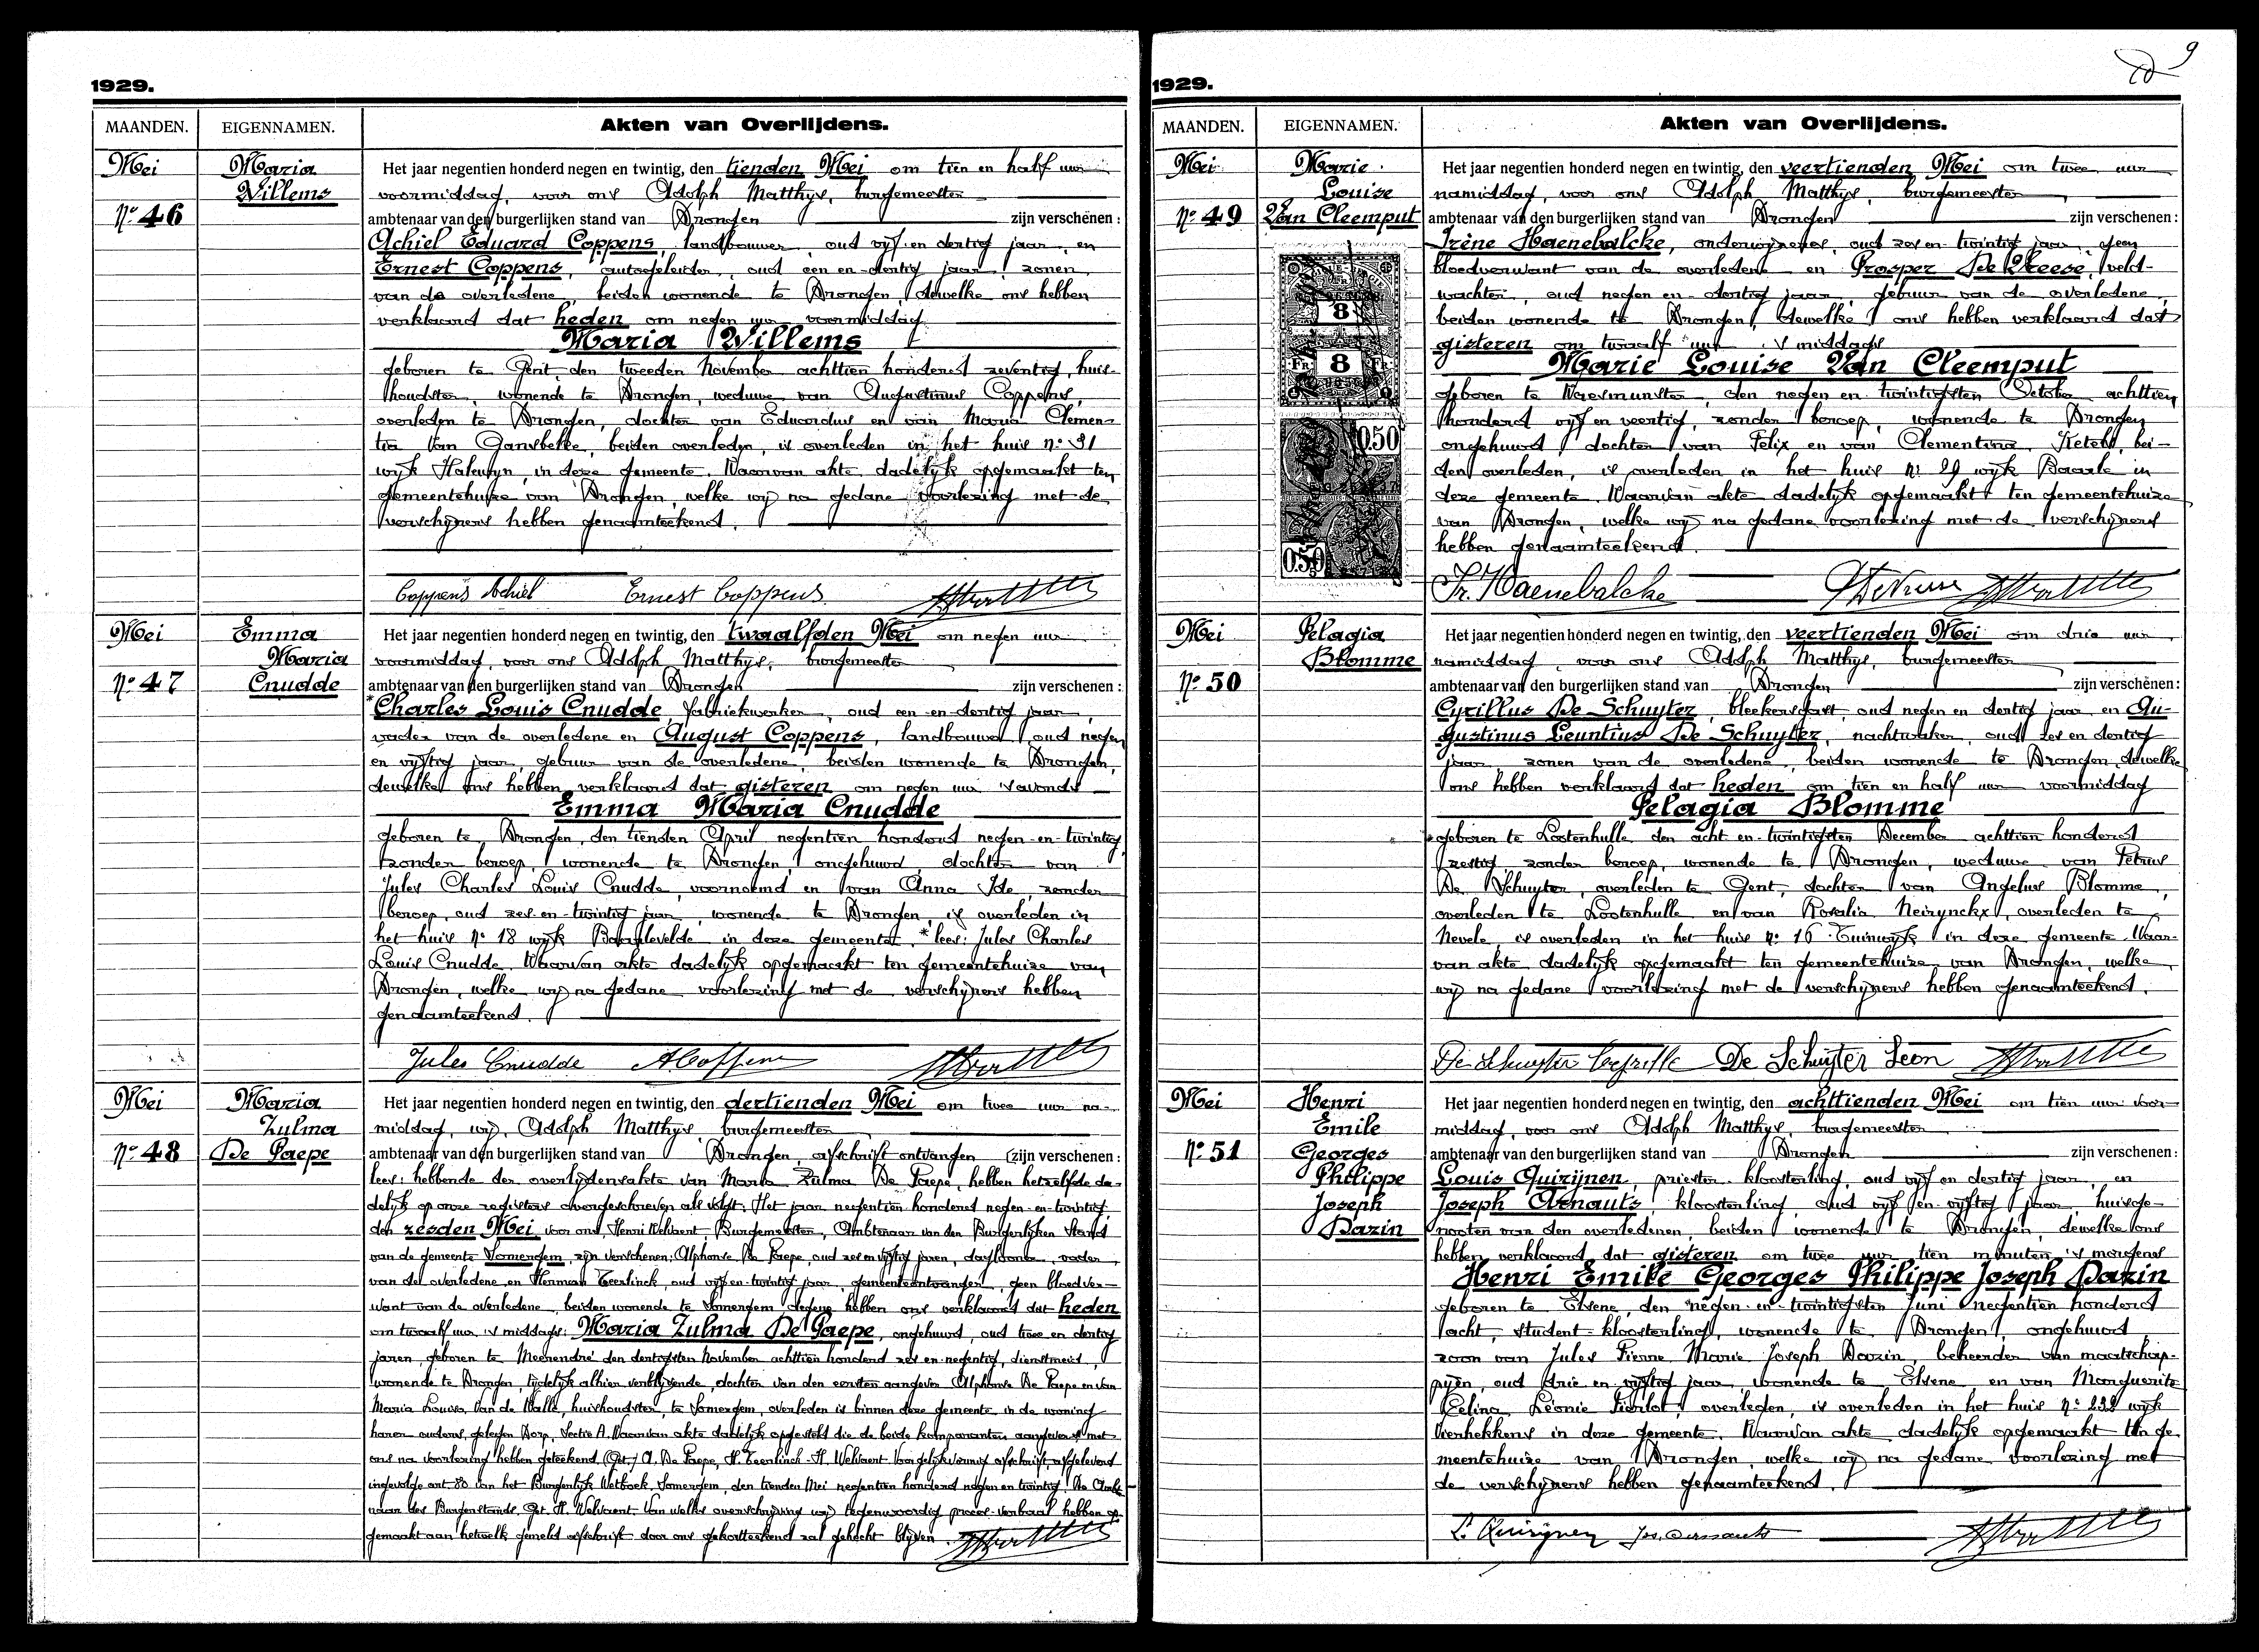 1929.
MAANDEN. EIGENNAMEN. Akten van Overlijdens.
Mei Maria Het jaar negentien honderd negen en twintig, den tienden Mei om tien en half uur
Willems voormiddag, voor ons Adolph Matthys, burgemeester
No 46 ambtenaar van den burgerlijken stand van Drongen zijn verschenen:
Achiel Eduard Coppens, landbouwer, oud vijf en dertig jaar, en
Ernest Coppens, autogeleider, oud een en dertig jaar, zonen
van de overledene, beiden wonende te Drongen, dewelke ons hebben
verklaard dat heden om negen uur voormiddag
Maria Willems
geboren te Gent, den tweeden November achttien honderd zeventig, huis-
houdster, wonende te Drongen, weduwe van Augustinus Coppens,
overleden te Drongen, dochter van Eduardus en van Maria Clemen-
tia Van Gansbeke, beiden overleden, is overleden in het huis No 31
wijk Halewyn, in deze gemeente. Waarvan akte dadelijk opgemaakt ten
gemeentehuize van Drongen, welke wij na gedane voorlezing met de
verschijners hebben genaamteekend.
Coppens Achiel Ernest Coppens
Mei Emma Het jaar negentien honderd negen en twintig, den twaalfden Mei om negen uur
Maria voormiddag, voor ons Adolph Matthys, burgemeester
No 47 Cnudde ambtenaar van den burgerlijken stand van Drongen zijn verschenen:
*Charles Louis Cnudde, fabriekwerker, oud een en dertig jaar,
vader van de overledene en August Coppens, landbouwer, oud negen
en vijftig jaar, gebuur van de overledene, beiden wonende te Drongen,
dewelke ons hebben verklaard dat gisteren om negen uur 's avonds
Emma Maria Cnudde
geboren te Drongen, den tienden April negentien honderd negen-en-twintig,
zonder beroep, wonende te Drongen, ongehuwd, dochter van
Jules Charles Louis Cnudde, voornoemd en van Anna Ide, zonder
beroep, oud zes-en-twintig jaar, wonende te Drongen, is overleden in
het huis No 18 wijk Baarlevelde in deze gemeente. *lees: Jules Charles
Louis Cnudde. Waarvan akte dadelijk opgemaakt ten gemeentehuize van
Drongen, welke wij na gedane voorlezing met de verschijners hebben
genaamteekend.
Jules Cnudde A Coppens
Mei Maria Het jaar negentien honderd negen en twintig, den dertienden Mei om twee uur na-
Zulma middag, wij, Adolph Matthys, burgemeester
No 48 De Paepe ambtenaar van den burgerlijken stand van Drongen, afschrift ontvangen (zijn verschenen:
lees: hebbende der overlijdensakte van Maria Zulma De Paepe, hebben hetzelfde da-
delijk op onze registers overgeschreven als volgt: Het jaar negentien honderd negen-en-twintig,
den zesden Mei, voor ons, Henri Welvaert, Burgemeester, Ambtenaar van den Burgerlijken Stand
van de gemeente Somergem, zijn verschenen: Alphonse De Paepe, oud zes en vijftig jaren, dagloner, vader
van de overledene en Herman Teerlinck, oud vijf-en-twintig jaar, gemeenteontvanger, geen bloedver-
want van de overledene, beiden wonende te Somergem, degene hebben ons verklaard dat heden
om twaalf uur 's middags: Maria Zulma De Paepe, ongehuwd, oud twee en dertig
jaren, geboren te Meerendré den dertigsten November achttien honderd zes en negentig, dienstmeid,
wonende te Drongen, tijdelijk alhier verblijvende, dochter van den eersten aangever Alphonse De Paepe en van
Maria Louisa Van de Walle, huishoudster, te Somergem, overleden is binnen deze gemeente, in de woning
harer ouders, gelegen Dorp, Sectie A. Waarvan akte dadelijk opgesteld die de beide komparanten aangevers met
ons na voorlezing hebben geteekend. (Get.) A. De Paepe, H. Teerlinck. H. Welvaert. Voor gelijkvormig afschrift, afgeleverd
ingevolge art 80 van het Burgerlijk Wetboek, Somergem, den tienden Mei negentien honderd negen en twintig. De Ambte-
naar des Burgerstands, Get. H. Welvaert. Van welke overschrijving wij tegenwoordig proces-verbaal hebben op-
gemaakt aan hetwelk gemeld afschrift door ons gekortteekend zal gehecht blijven.
9
1929.
MAANDEN. EIGENNAMEN. Akten van Overlijdens.
Mei Marie Het jaar negentien honderd negen en twintig, den veertienden Mei om twee uur
Louise namiddag, voor ons Adolph Matthys, burgemeester
No 49 Van Cleemput ambtenaar van den burgerlijken stand van Drongen zijn verschenen:
Irène Haenebalcke, onderwijzeres, oud zes en twintig jaar, geen
bloedverwant van de overledene en Prosper De Vreese, veld-
wachter, oud negen en dertig jaar, gebuur van de overledene,
beiden wonende te Drongen, dewelke ons hebben verklaard dat
gisteren om twaalf uur 's middags
Marie Louise Van Cleemput
geboren te Waesmunster, den negen en twintigsten October achttien
honderd vijf en veertig, zonder beroep, wonende te Drongen
ongehuwd, dochter van Felix en van Clementina Ketels, bei-
den overleden, is overleden in het huis No 29 wijk Baarle in
deze gemeente. Waarvan akte dadelijk opgemaakt ten gemeentehuize
van Drongen, welke wij na gedane voorlezing met de verschijners
hebben genaamteekend.
8
FR 8
0.50
0.50
Ir. Haenebalcke
Mei Pelagia Het jaar negentien honderd negen en twintig, den veertienden Mei om drie uur
Blomme namiddag, voor ons Adolph Matthys, burgemeester
No 50 ambtenaar van den burgerlijken stand van Drongen zijn verschenen:
Cyrillus De Schuyter, bleekersgast, oud negen en dertig jaar en Au-
gustinus Leuntius De Schuyter, nachtwaker, oud zes en dertig
jaar, zonen van de overledene, beiden wonende te Drongen, dewelke
ons hebben verklaard dat heden om tien en half uur voormiddag
Pelagia Blomme
geboren te Lootenhulle, den acht en-twintigsten December achttien honderd
zestig, zonder beroep, wonende te Drongen, weduwe van Petrus
De Schuyter, overleden te Gent, dochter van Angelus Blomme,
overleden te Lootenhulle en van Rosalia Neirynckx, overleden te
Nevele, is overleden in het huis No 16 Tuinwijk in deze gemeente. Waar-
van akte dadelijk opgemaakt ten gemeentehuize van Drongen, welke
wij na gedane voorlezing met de verschijners hebben genaamteekend.
De Schuyter De Schuyter Leon
Mei Henri Het jaar negentien honderd negen en twintig, den achttienden Mei om tien uur voor-
Emile middag, voor ons Adolph Matthys, burgemeester
No 51 Georges ambtenaar van den burgerlijken stand van Drongen zijn verschenen:
Philippe Louis Quirijnen, priester-kloosterling, oud vijf en dertig jaar, en
Joseph Joseph Arnauts, kloosterling, oud vijf en vijftig jaar, huisge-
Dazin nooten van den overledenen, beiden wonende te Drongen, dewelke ons
hebben verklaard dat gisteren om twee uur tien minuten 's morgens
Henri Emile Georges Philippe Joseph Dazin
geboren te Elsene, den negen-en-twintigsten Juni negentien honderd
acht, student-kloosterling, wonende te Drongen, ongehuwd,
zoon van Jules Pierre Marie Joseph Dazin, beheerder van maatschap-
pijen, oud drie en vijftig jaar, wonende te Elsene, en van Marguerite
Celina Léonie Pierlot, overleden, is overleden in het huis No 222 wijk
Vierhekkens in deze gemeente. Waarvan akte dadelijk opgemaakt ten ge-
meentehuize van Drongen, welke wij na gedane voorlezing met
de verschijners hebben genaamteekend.
L. Quirijnen Jos. Arnauts